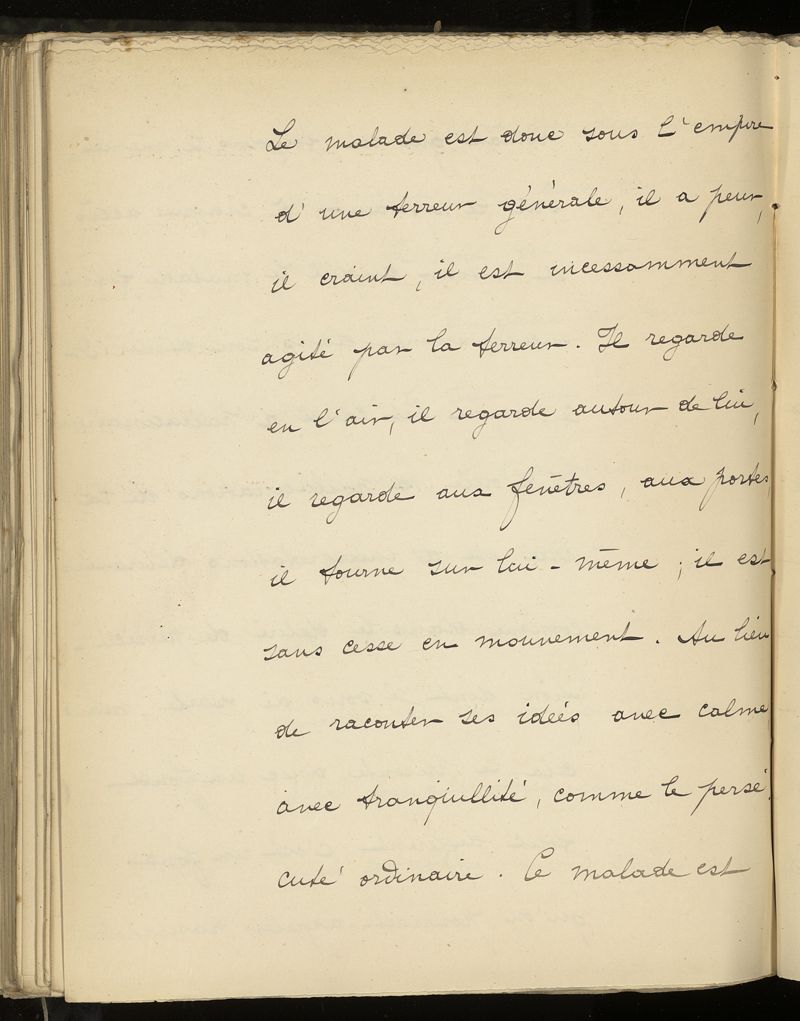 Le malade est donc sous l'empire
d'une terreur générale, il a peur,
il craint, il est incessamment
agité par la terreur. Il regarde
en l'air, il regarde autour de lui,
il regarde aux fenêtres, aux portes,
il tourne sur lui-même ; il est
sans cesse en mouvement. Au lieu
de raconter ses idées avec calme
avec tranquillité, comme le persé-
cuté ordinaire. Ce malade est